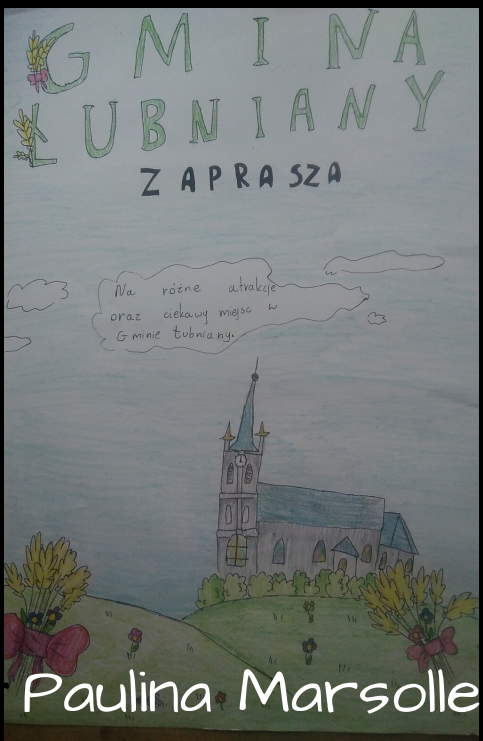 GMINA
ŁUBNIANY
ZAPRASZA
Na różne atrakcje
oraz ciekawy miejsc w
Gminie Łubniany.
Paulina Marsolle